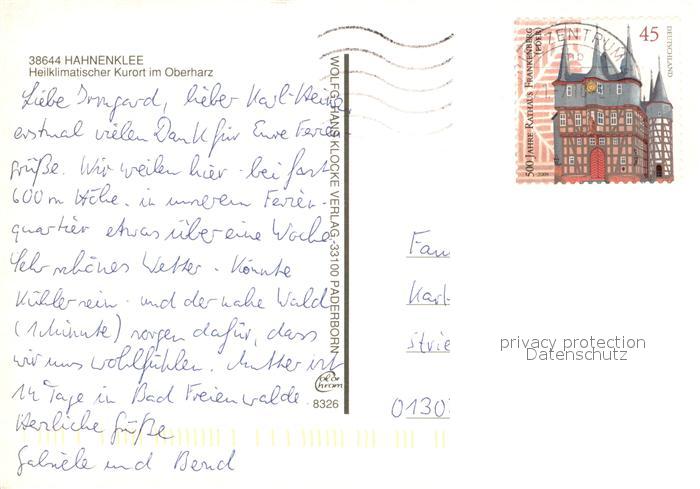 38644 HAHNENKLEE
Heilklimatischer Kurort im Oberharz
Liebe Irmgard, lieber Karl-Heinz,
erstmal vielen Dank für Eure Ferien
grüße. Wir weilen hier - bei fast
600 m Höhe - in unserem Ferien-
quartier etwas über eine Woche.
Sehr schönes Wetter - könnte
kühler sein - und der nahe Wald
(1 Minute) sorgen dafür, dass
wir uns wohlfühlen. Mutter ist
14 Tage in Bad Freienwalde.
Herzliche Grüße
Gabriele und Bernd
WOLFGANG HANS KLOCKE VERLAG · 33100 PADERBORN
color
chrom
8326
ZENTRUM
500 JAHRE RATHAUS FRANKENBERG
(EDER)
45
DEUTSCHLAND
2009
Fam
Karl-
Strie
0130
privacy protection
Datenschutz